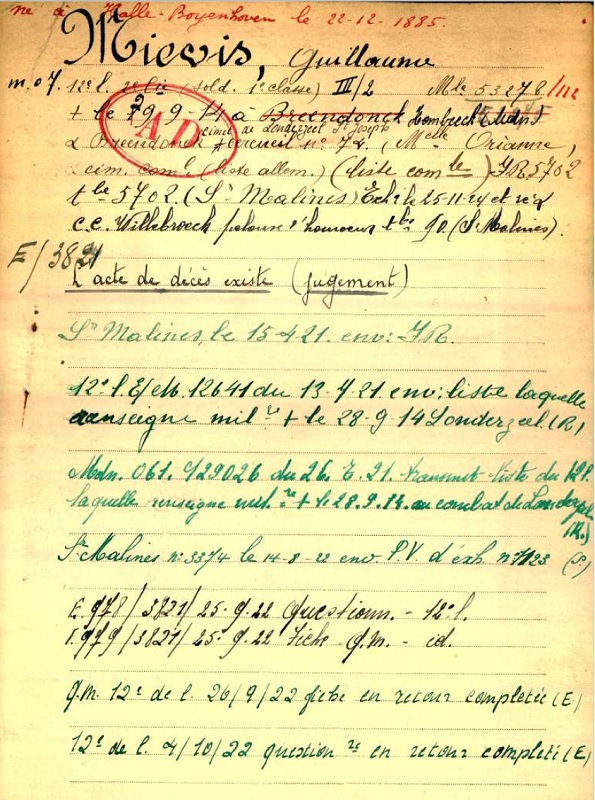 né à Halle-Boyenhoven le 22-12-1885.
Mievis, Guillaume
12e l. 2e Cie (sold. 1e classe) III/2 Mle 53278/112
+ le 29-9-14 à Breendonck
AD
cimre de Londerzeel St Joseph
à Breendonck cercueil n° 72. (Melle Orianne,
cim. coml. (liste allem.) (liste comle) F.R. 5702
tbe 5702. (Sr Malines) Exh. le 25-11-24 et ré à
c.c. Willebroeck pelouse d'honneur tbe 90. (Sr Malines).
E/3821
L'acte de décès existe (jugement)
Sr Malines, le 15-4-21. env: F.R.
12e l. E/M. 12641 du 13-4-21 env: liste laquelle
renseigne mil re + le 28-9-14 Londerzeel (R)
Mdn. 061. 429026 du 26. 5. 21. transmet liste du 12 l.
laquelle renseigne mil. re + le 28.9.14. au combat de Londerzeel
(R.)
Sr Malines n° 3374 le 14-8-22 env. P.V. d'exh. n° 7123 (S)
E. 978/3821/25-9-22 Questionn. - 12e l.
F. 979/3821/25-9-22 Fiche Q.M. - id.
Q.M. 12e de l. 26/9/22 fiche en retour completée (E)
12e de l. 4/10/22 question re en retour completé (E)